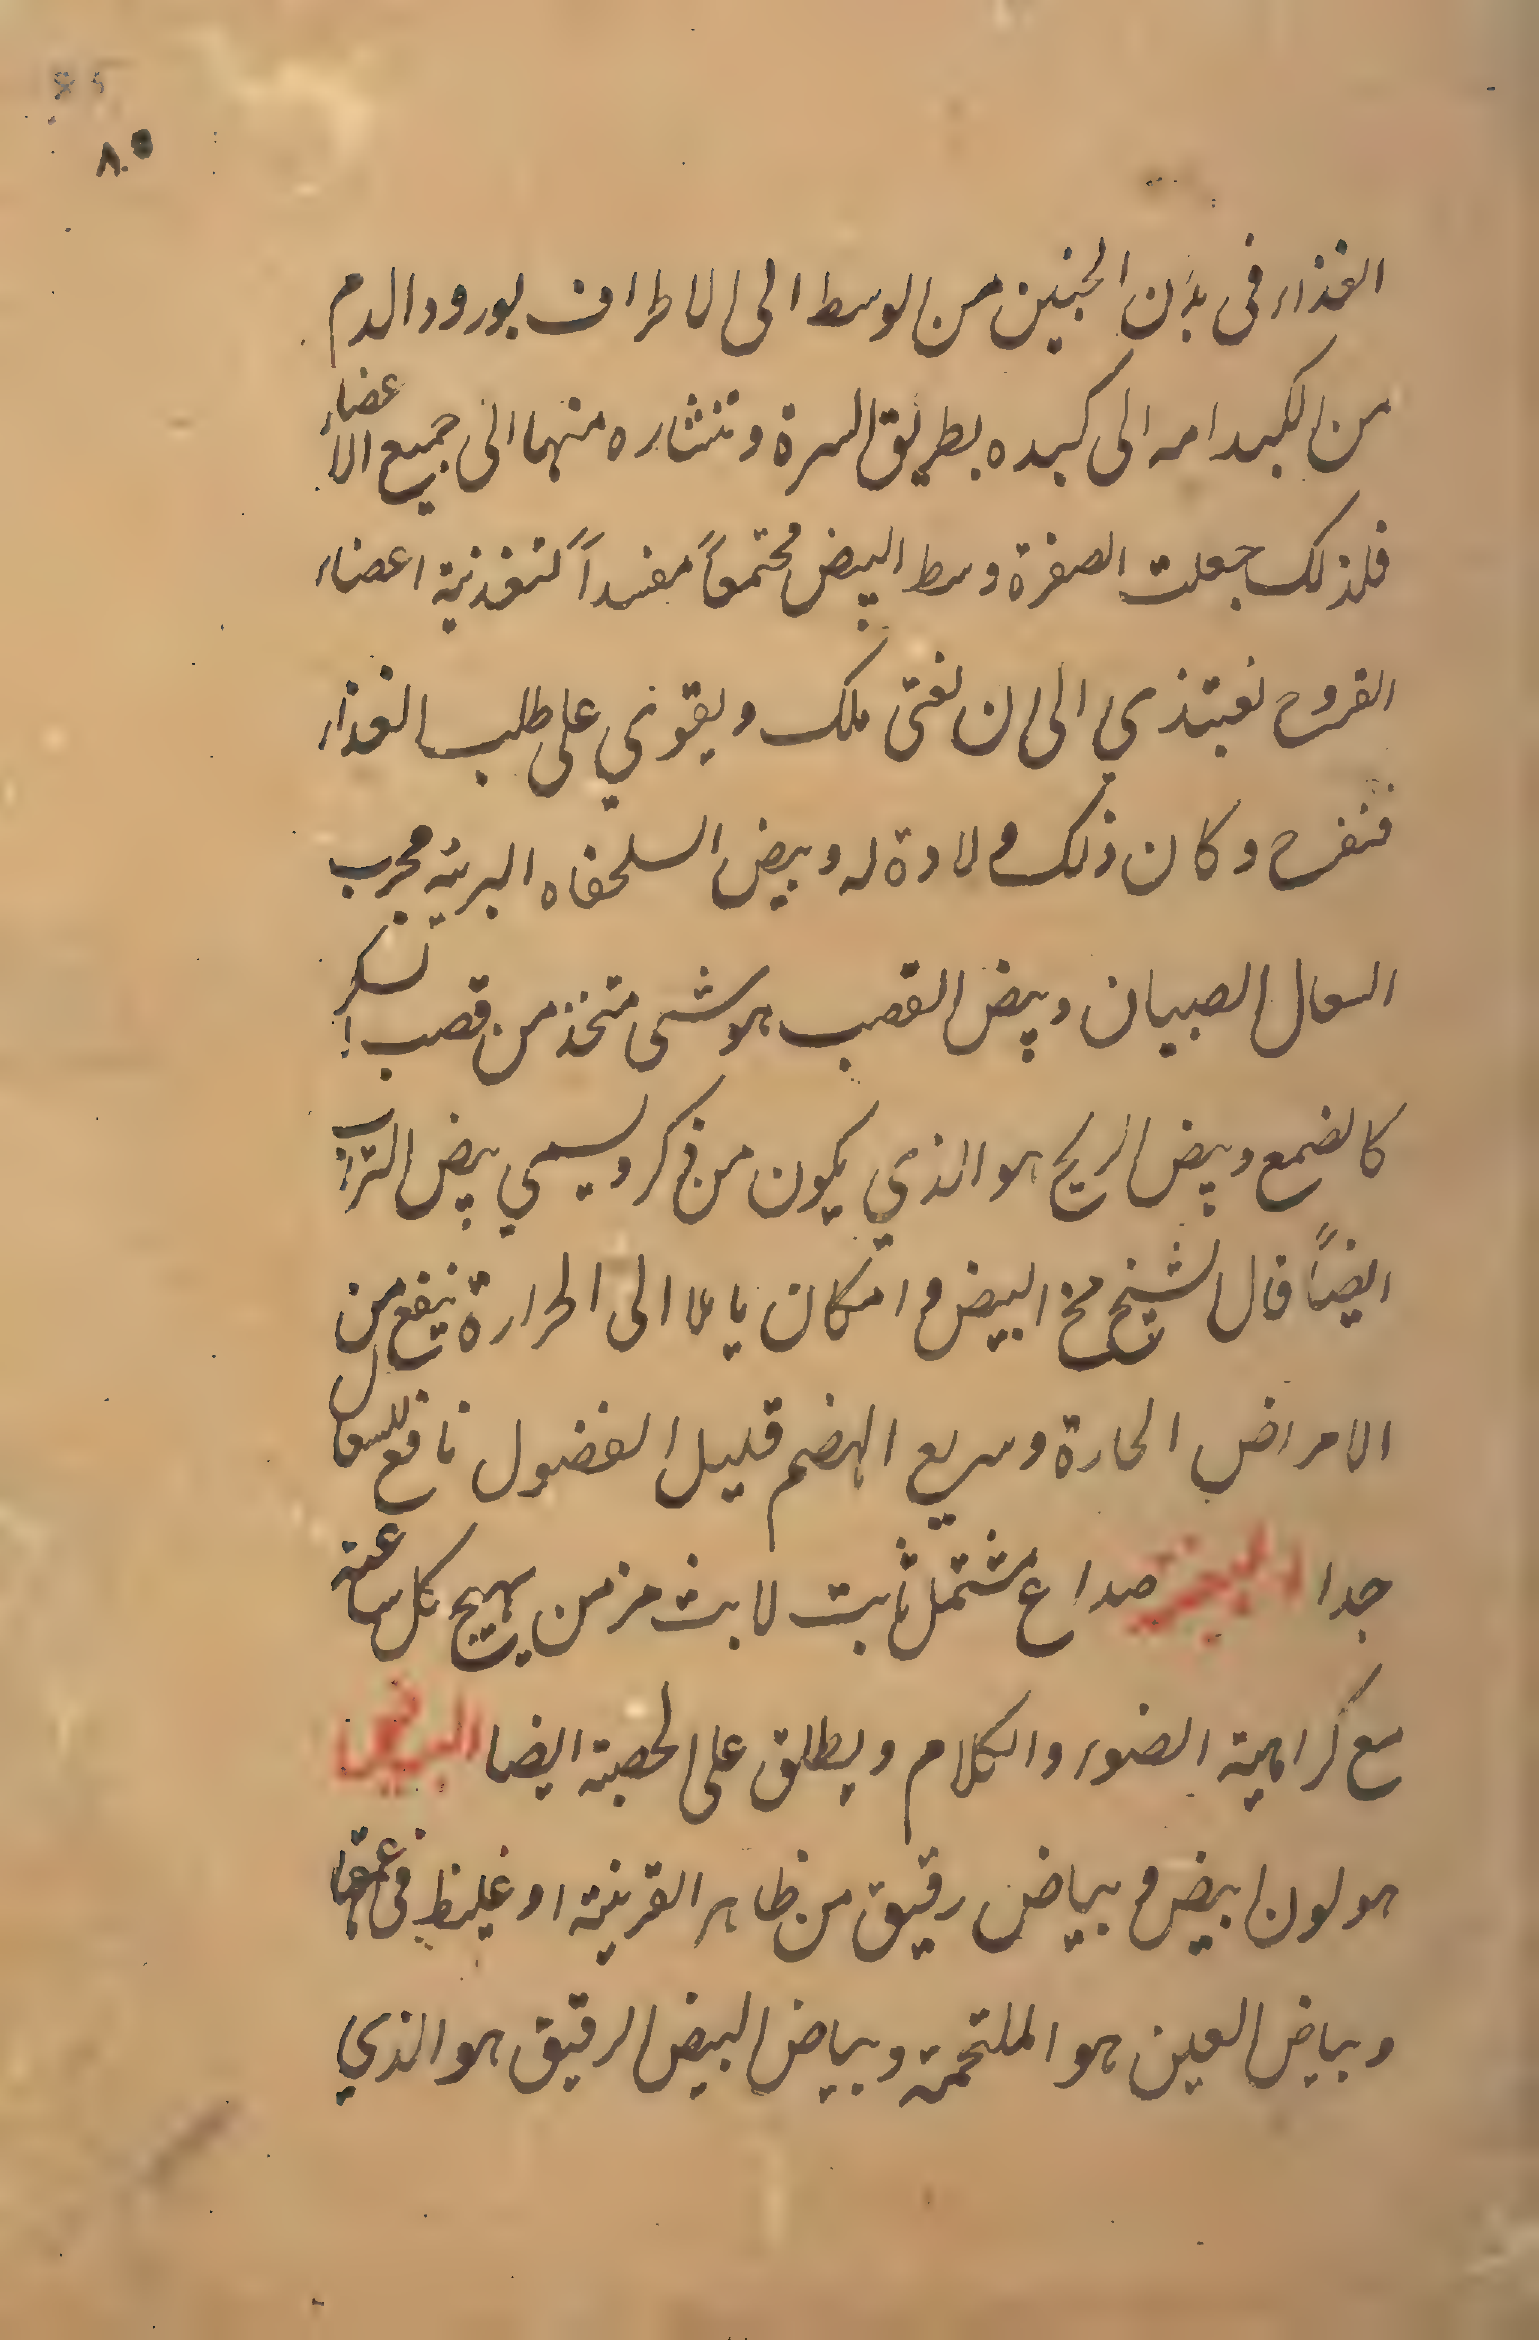 ٨٥
الغذاء فى بدن الجنين من الوسط الى الاطراف لورود الدم
من الكبد امه الى كبده بطريق السرة وتنثاره منهما الى جميع الاعضاء
فلذلك جعلت الصفرة وسط البيض مجتمعاً مفسداً لتغذية اعضاء
الفروح الى ان ويقوي على طلب الغذاء
وكان ذلك ولادة له وبيض السلحفاه البرية مجرب
السعال الصبيان وبيض القصب هو شى متخذ من قصب السكر
كالضمع وبيض الريح هو الذي يكون من ذكر ويسمي بيض التراب
ايضاً قال الشيخ مخ البيض و امكان يا ملا الى الحرارة ينفع من
الامراض الحارة وسريع الهضم قليل الفضول نافع للسعال
جدا البيضة صداع مشتمل ثابت لابث مزمن يهيج كل ساعته
مع كراهية الضوء والكلام ويطلق على الحصبة ايضا البياض
هو لون ابيض و بياض رقيق من ظاهر القرنية او غليظ فى عمقها
وبياض العين هو الملتحمة وبياض البيض الرقيق هو الذي